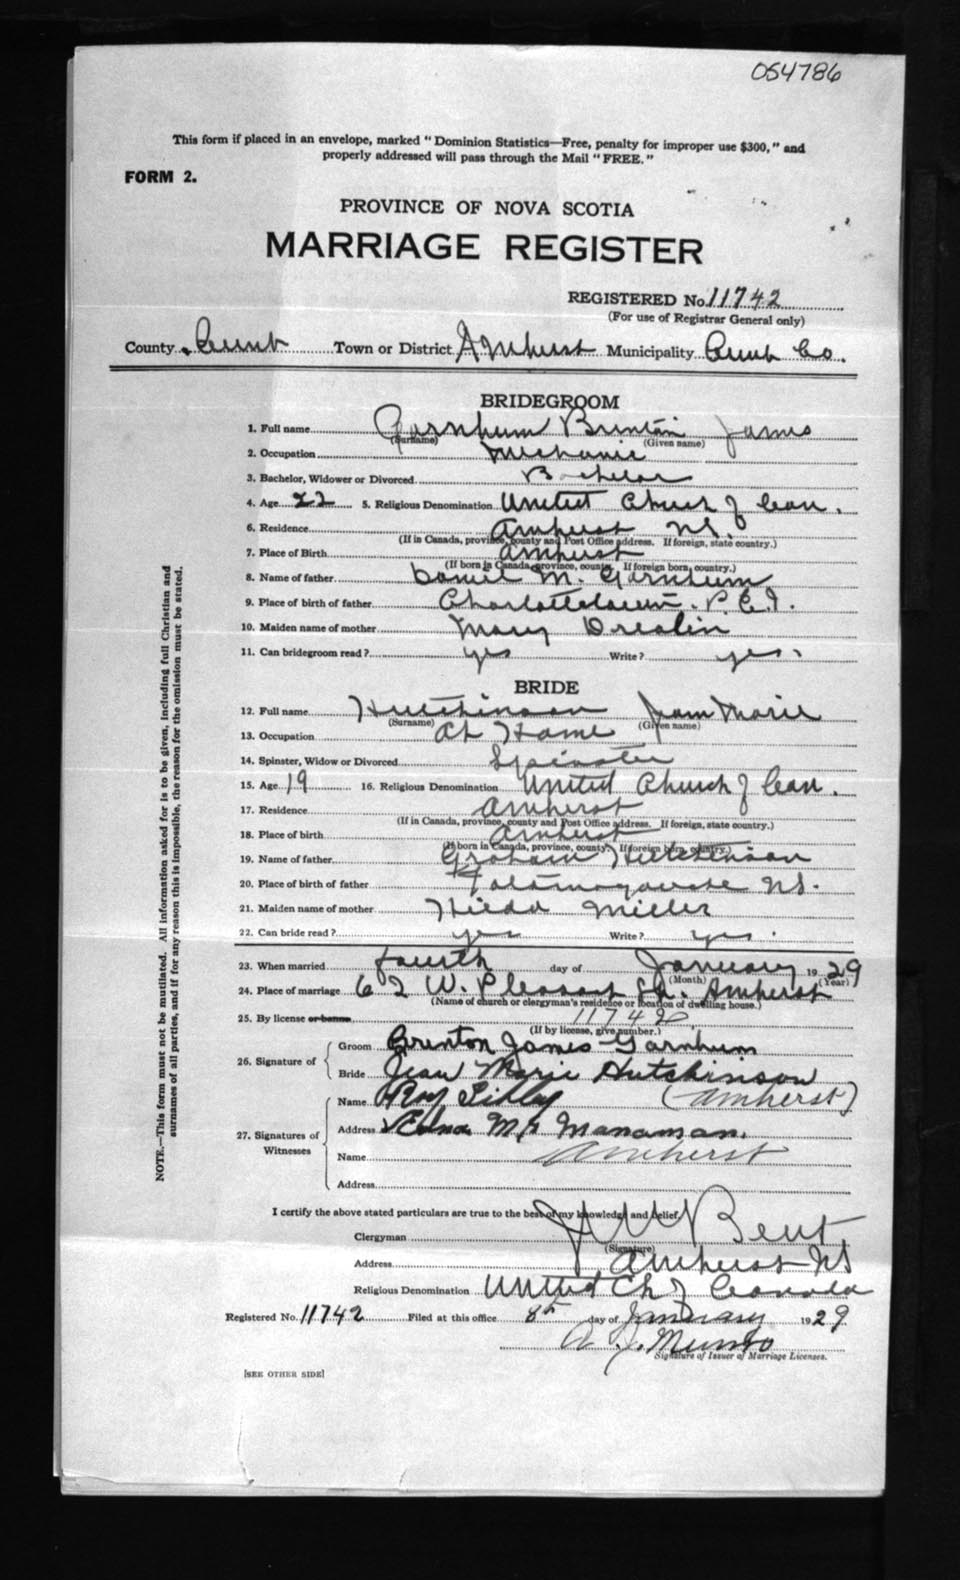 054786
This form if placed in an envelope, marked "Dominion Statistics—Free, penalty for improper use $300," and
properly addressed will pass through the Mail "FREE."
FORM 2.
PROVINCE OF NOVA SCOTIA
MARRIAGE REGISTER
REGISTERED No. 11742
(For use of Registrar General only)
County Cumb Town or District Amherst Municipality Cumb Co.
BRIDEGROOM
1. Full name Garnhum Brinton James
(Surname) (Given name)
2. Occupation Mechanic
3. Bachelor, Widower or Divorced Bachelor
4. Age 22 5. Religious Denomination United Church of Can.
6. Residence Amherst N.S.
(If in Canada, province, county and Post Office address. If foreign, state country.)
7. Place of Birth Amherst
(If born in Canada, province, county. If foreign born, country.)
8. Name of father Daniel M. Garnhum
9. Place of birth of father Charlottetown. P.E.I.
10. Maiden name of mother Mary
11. Can bridegroom read? yes Write? yes.
BRIDE
12. Full name Hutchinson Jean Marie
(Surname) (Given name)
13. Occupation At Home
14. Spinster, Widow or Divorced Spinster
15. Age 19 16. Religious Denomination United Church of Can.
17. Residence Amherst
(If in Canada, province, county and Post Office address. If foreign, state country.)
18. Place of birth Amherst
(If born in Canada, province, county. If foreign born, country.)
19. Name of father Graham Hutchinson
20. Place of birth of father Tatamagouche N.S.
21. Maiden name of mother Hilda Miller
22. Can bride read? yes Write? yes.
23. When married fourth day of January 1929
(Month) (Year)
24. Place of marriage 62 W. Pleasant St. Amherst
(Name of church or clergyman's residence or location of dwelling house.)
25. By license or banns 11742
(If by license, give number.)
26. Signature of Groom Brinton James Garnhum
Bride Jean Marie Hutchinson
27. Signatures of Witnesses Name Roy (Amherst)
Address Edna
Name Amherst
Address
I certify the above stated particulars are true to the best of my knowledge and belief,
Clergyman Bent
(Signature)
Address Amherst NS
Religious Denomination United Ch of Canada
Registered No. 11742 Filed at this office 8th day of January 1929
A. J. Munro
Signature of Issuer of Marriage Licenses.
[SEE OTHER SIDE]
NOTE.—This form must not be mutilated. All information asked for is to be given, including full Christian and
surnames of all parties, and if for any reason this is impossible, the reason for the omission must be stated.